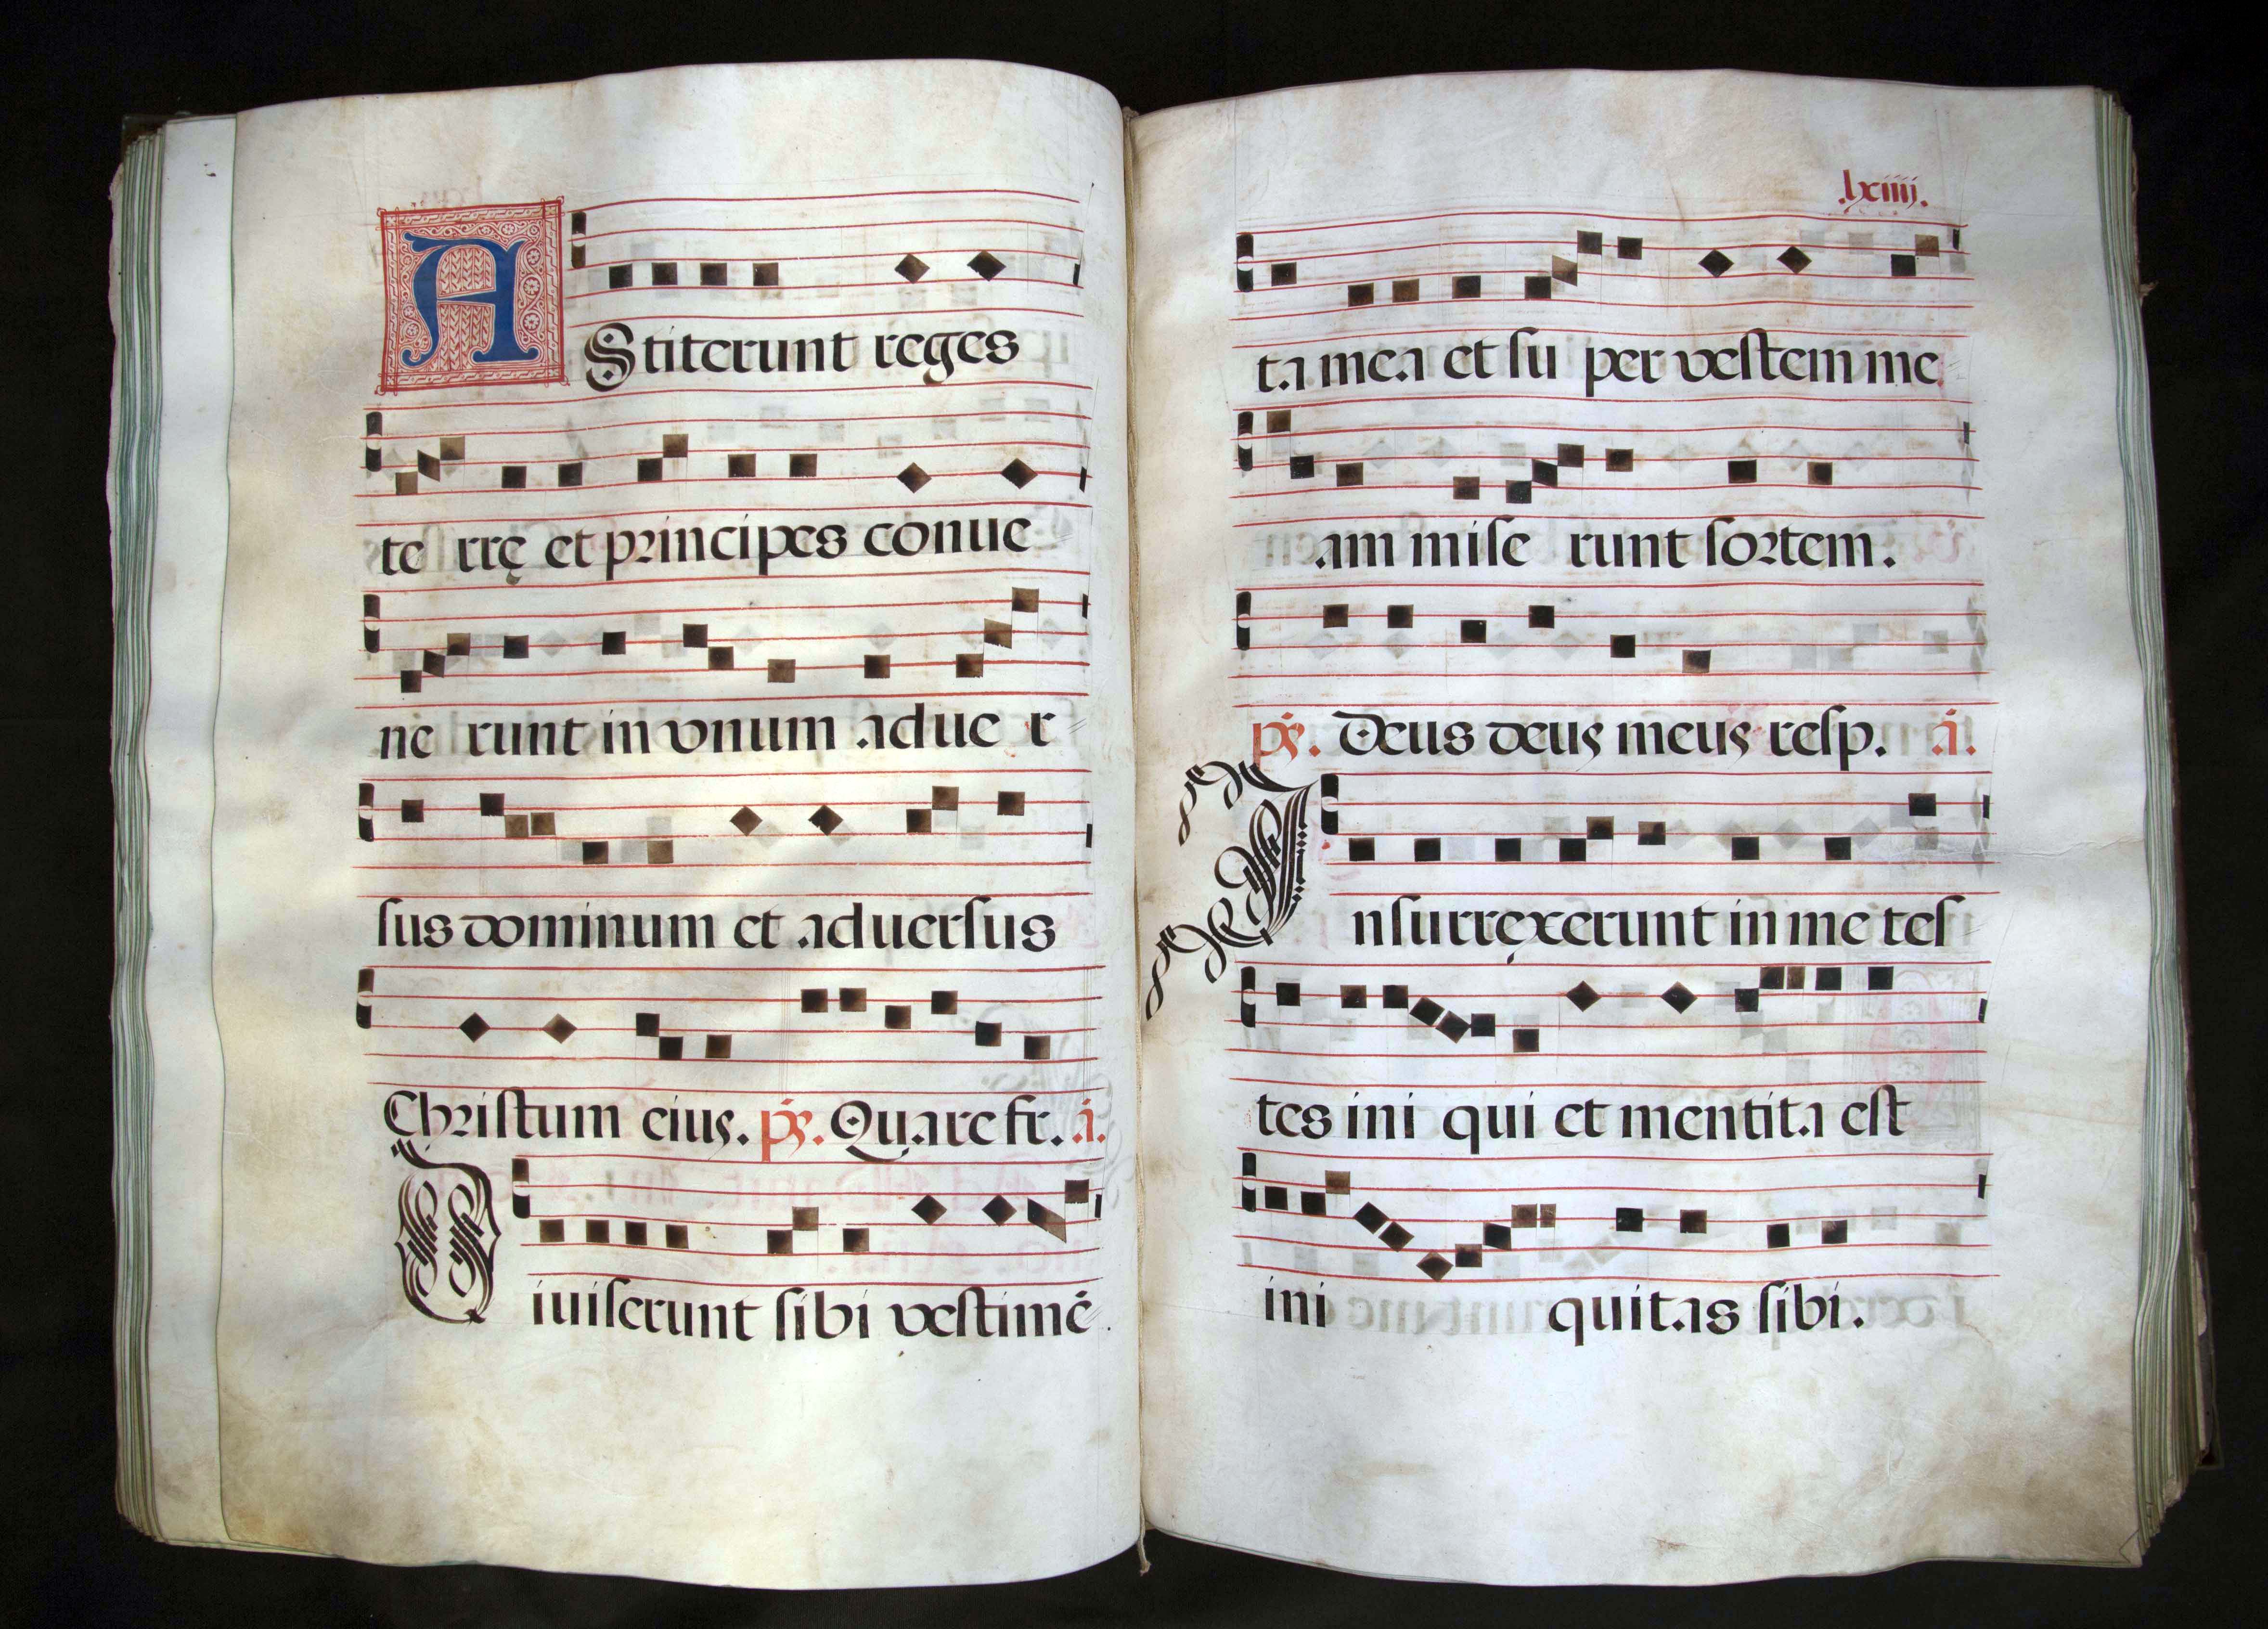 AStiterunt reges
te rrę et principes conue
ne runt in vnum adue r
sus dominum et aduersus
Christum eius. ps. Quare fr. a.
Diuiserunt sibi vestimē
.lxiiij.
ta mea et su per vestem me
am mise runt sortem.
ps. Deus deus meus resp. a.
Insurręxerunt in me tes
tes ini qui et mentita est
ini quitas sibi.